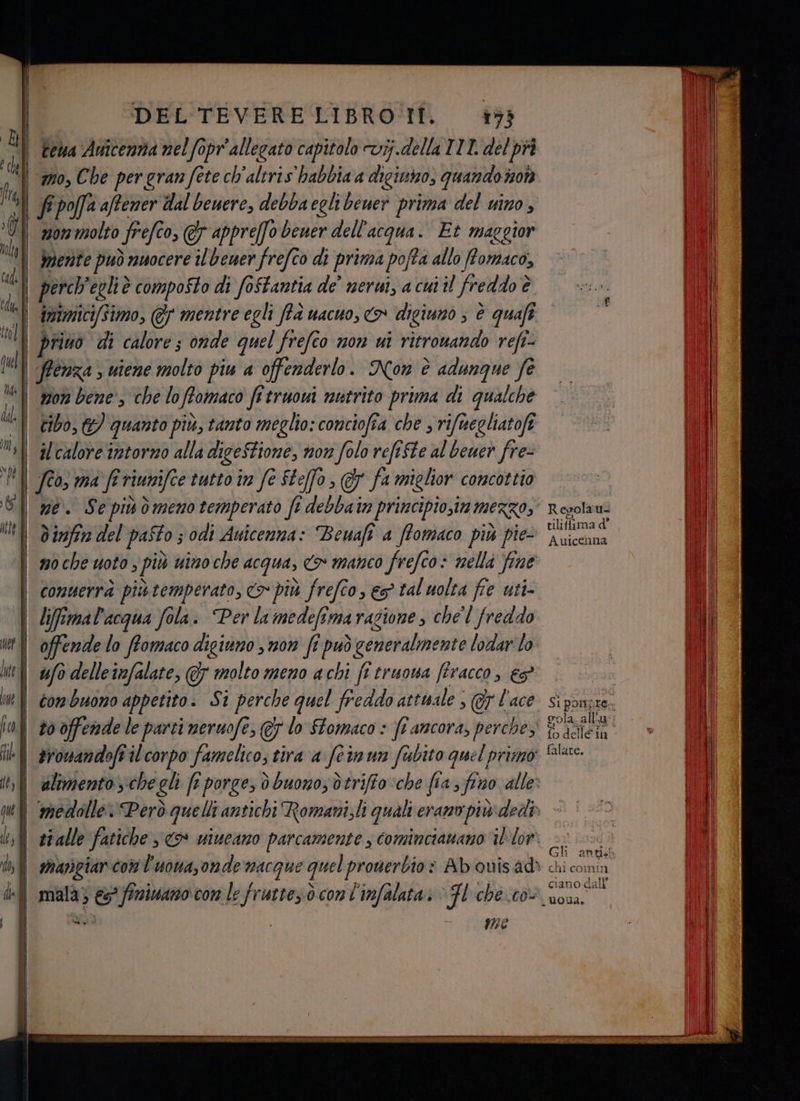 DEL TEVERE LIBRO II. 173
ceua Auicenna nel sopr'allegato capitolo vij. della III. del pri
mo, Che per gran sete ch'altris'habbia a digiuno, quando non
si possa astener dal beuere, debba egli beuer prima del uino,
non molto fresco, & appresso beuer dell'acqua. Et maggior
mente può nuocere il beuer fresco di prima posta allo stomaco,
perch'egli è composto di sostantia de' nerui, a cui il freddo è
inimicissimo, & mentre egli stà uacuo, & digiuno, è quasi
priuo di calore; onde quel fresco non ui ritrouando resi-
stenza, uiene molto piu a offenderlo. Non è adunque se
non bene, che lo stomaco si truoui nutrito prima di qualche
cibo, & quanto più, tanto meglio: conciosia che, risuegliatosi
il calore intorno alla digestione, non solo resiste al beuer fre-
sco, ma si riunisce tutto in se stesso, & fa miglior concottio
ne. Se più ò meno temperato si debba in principio, in mezzo,
ò infin del pasto; odi Auicenna: Beuasi a stomaco più pie-
no che uoto, più uino che acqua, & manco fresco: nella fine
conuerrà più temperato, & più fresco, & tal uolta fie uti-
lissima l'acqua sola. Per la medesima ragione, che'l freddo
offende lo stomaco digiuno, non si può generalmente lodar lo
uso delle insalate, & molto meno a chi si truoua stracco, &
con buono appetito. Si perche quel freddo attuale, & l'ace
to offende le parti neruose, & lo stomaco: si ancora, perche,
trouandosi il corpo famelico, tira a se in un subito quel primo
alimento, che gli si porge, ò buono, ò tristo che sia, fino alle
medolle. Però quelli antichi Romani, li quali eran più dedi
ti alle fatiche, & uiueano parcamente, cominciauano il lor
mangiar con l'uoua, onde nacque quel prouerbio: Ab ouis ad
mala; & finiuano con le frutte, ò con l'insalata. Il che co-
me
Regola u-
tilissima d'
Auicenna
Si pon
gola all'u
so delle in
salate.
Gli antichi
chi comin
ciano dall'
uoua.